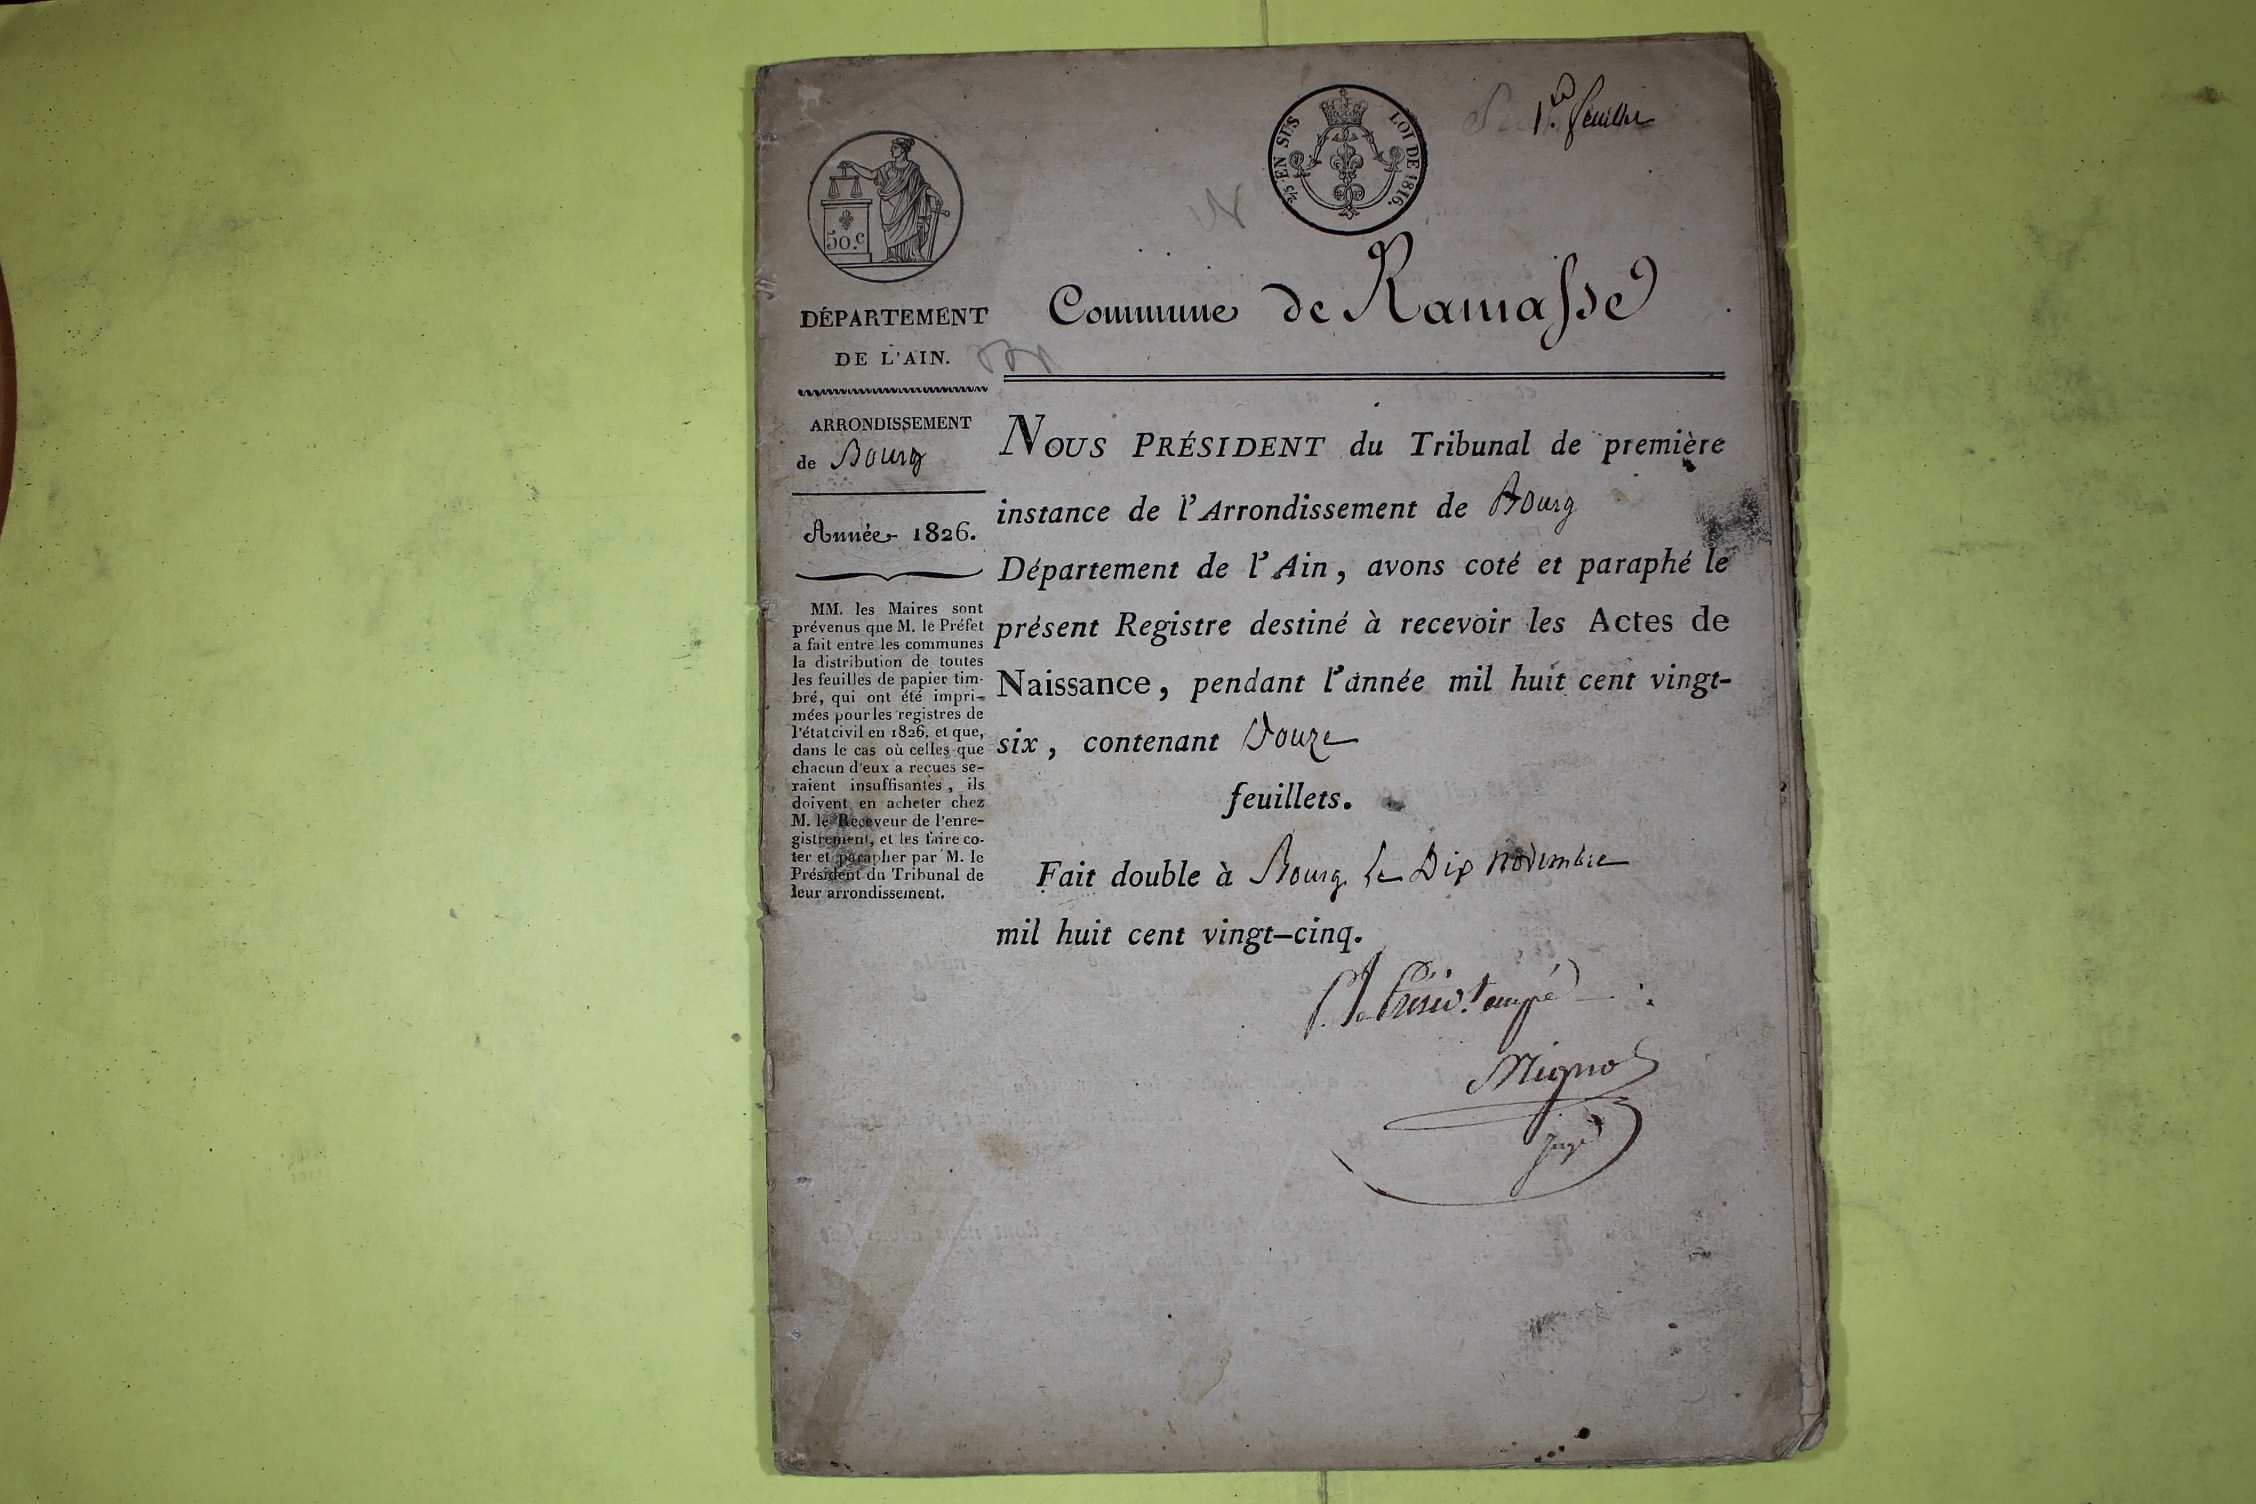 1.er feuillet
2/5 EN SUS LOI DE 1816.
50.c
DÉPARTEMENT
DE L'AIN.
ARRONDISSEMENT
de Bourg
Année 1826.
MM. les Maires sont
prévenus que M. le Préfet
a fait entre les communes
la distribution de toutes
les feuilles de papier tim-
bré, qui ont été impri-
mées pour les registres de
l'état civil en 1826, et que,
dans le cas où celles que
chacun d'eux a reçues se-
raient insuffisantes, ils
doivent en acheter chez
M. le Receveur de l'enre-
gistrement, et les faire co-
ter et parapher par M. le
Président du Tribunal de
leur arrondissement.
Commune de Ramasse
NOUS PRÉSIDENT du Tribunal de première
instance de l'Arrondissement de Bourg
Département de l'Ain, avons coté et paraphé le
présent Registre destiné à recevoir les Actes de
Naissance, pendant l'année mil huit cent vingt-
six, contenant Douze
feuillets.
Fait double à Bourg le Dix novembre
mil huit cent vingt-cinq.
P. le Présid.t empé
Mignot
Juge